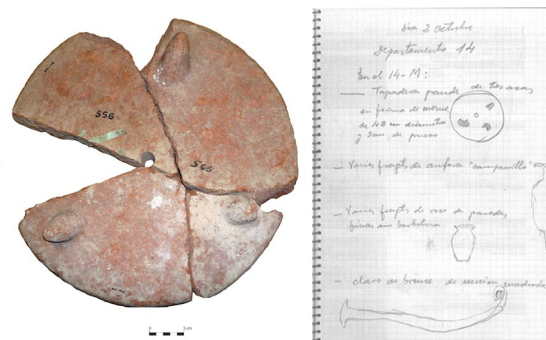 556
566
0 5 cm
Dia 2 Octubre
Departamento 14
En el 14-M:
— Tapadera grande de tres asas
en forma de
de 48 cm diametro
y 2 cm. de grueso
— Varios fragts de anfora "campanillo"
— Varios fragts de vaso de paredes
finas sin barbotina
— clavo de bronce de seccion cuadrada